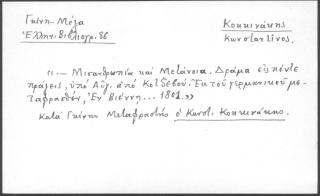 Γκίνη - Μέξα
Ἑλλην. Βιβλιογρ. 86
Κοκκινάκης
Κωνσταντῖνος.
"- Μισανθρωπία καὶ Μετάνοια. Δρᾶμα εἰς πέντε
πράξεις, ὑπὸ Αὐγ. ἀπὸ Κοτζεβοῦ. Ἐκ τοῦ γερμανικοῦ με-
ταφρασθέν, Ἐν Βιέννῃ... 1801.,,
Κατὰ Γκίνην Μεταφραστὴς ὁ Κωνστ. Κοκκινάκης.